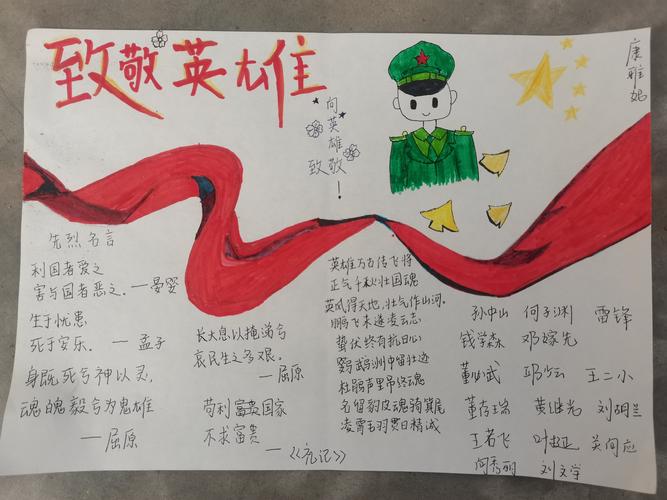 致敬英雄
向英雄
致敬！
康雅
先烈名言
利国者爱之
害与国者恶之.——晏婴
生于忧患
死于安乐. ——孟子
身既死兮神以灵,
魂魄毅兮为鬼雄
——屈原
长太息以掩涕兮
哀民生之多艰.
——屈原
苟利国家
不求富贵
——《礼记》
英雄万古传飞将
正气千秋壮国魂
英风得天地,壮气作山河.
鹏飞未遂凌云志
蛰伏终有抗日心
鹦鹉洲中留壮迹
杜鹃声里吊终魂
名留豹皮魂骑箕尾
凌霄毛羽贯日精诚
孙中山 何子渊 雷锋
钱学森 邓稼先
董必武 邱少云 王二小
董存瑞 黄继光 刘胡兰
王若飞 叶挺 关向应
闫秀丽 刘文学